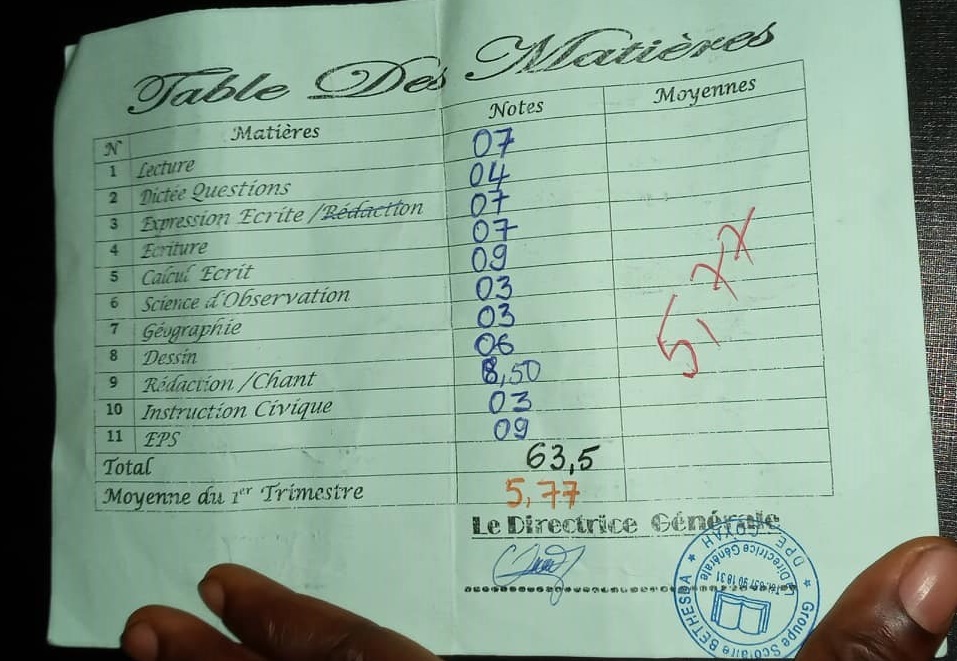 Table Des Matières
N° Matières Notes Moyennes
1 Lecture 07
2 Dictée Questions 04
3 Expression Ecrite / Rédaction 07
4 Ecriture 07
5 Calcul Ecrit 09
6 Science d'Observation 03
7 Géographie 03
8 Dessin 06
9 Rédaction / Chant 8,50
10 Instruction Civique 03
11 EPS 09
Total 63,5
Moyenne du 1er Trimestre 5,77
5,77
Le Directrice Générale
DPE COYAH
Directrice Générale
Groupe Scolaire BETHESDA